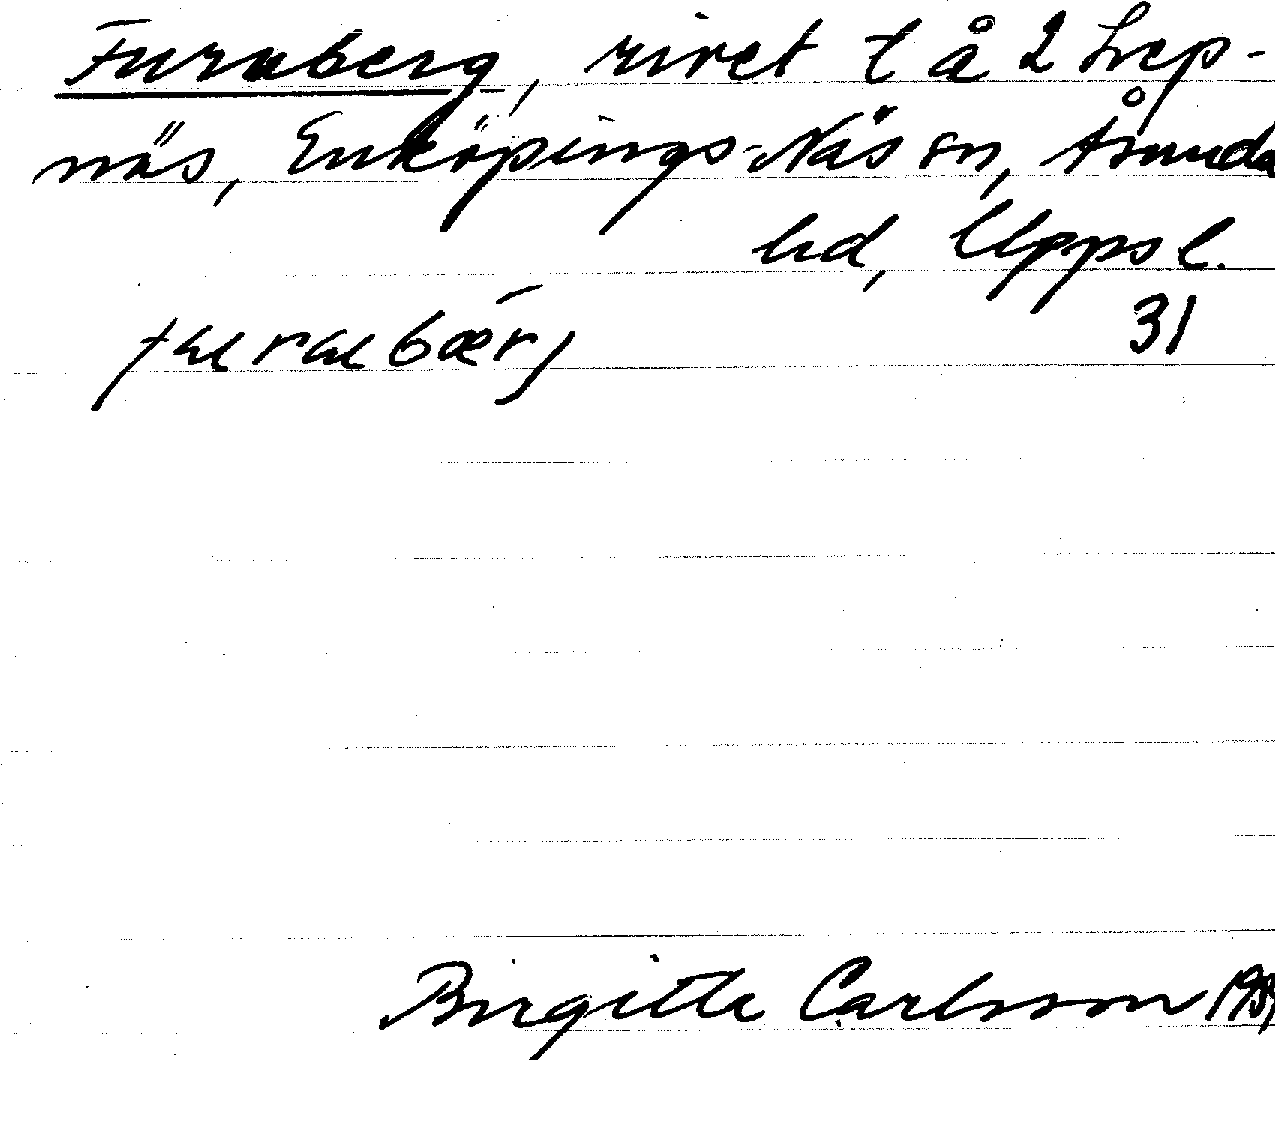 Furuberg, rivet t å 2 Svep-
näs, Enköpings-Näs sn, Åsunda
hd, Upps l.
31
Birgitta Carlsson